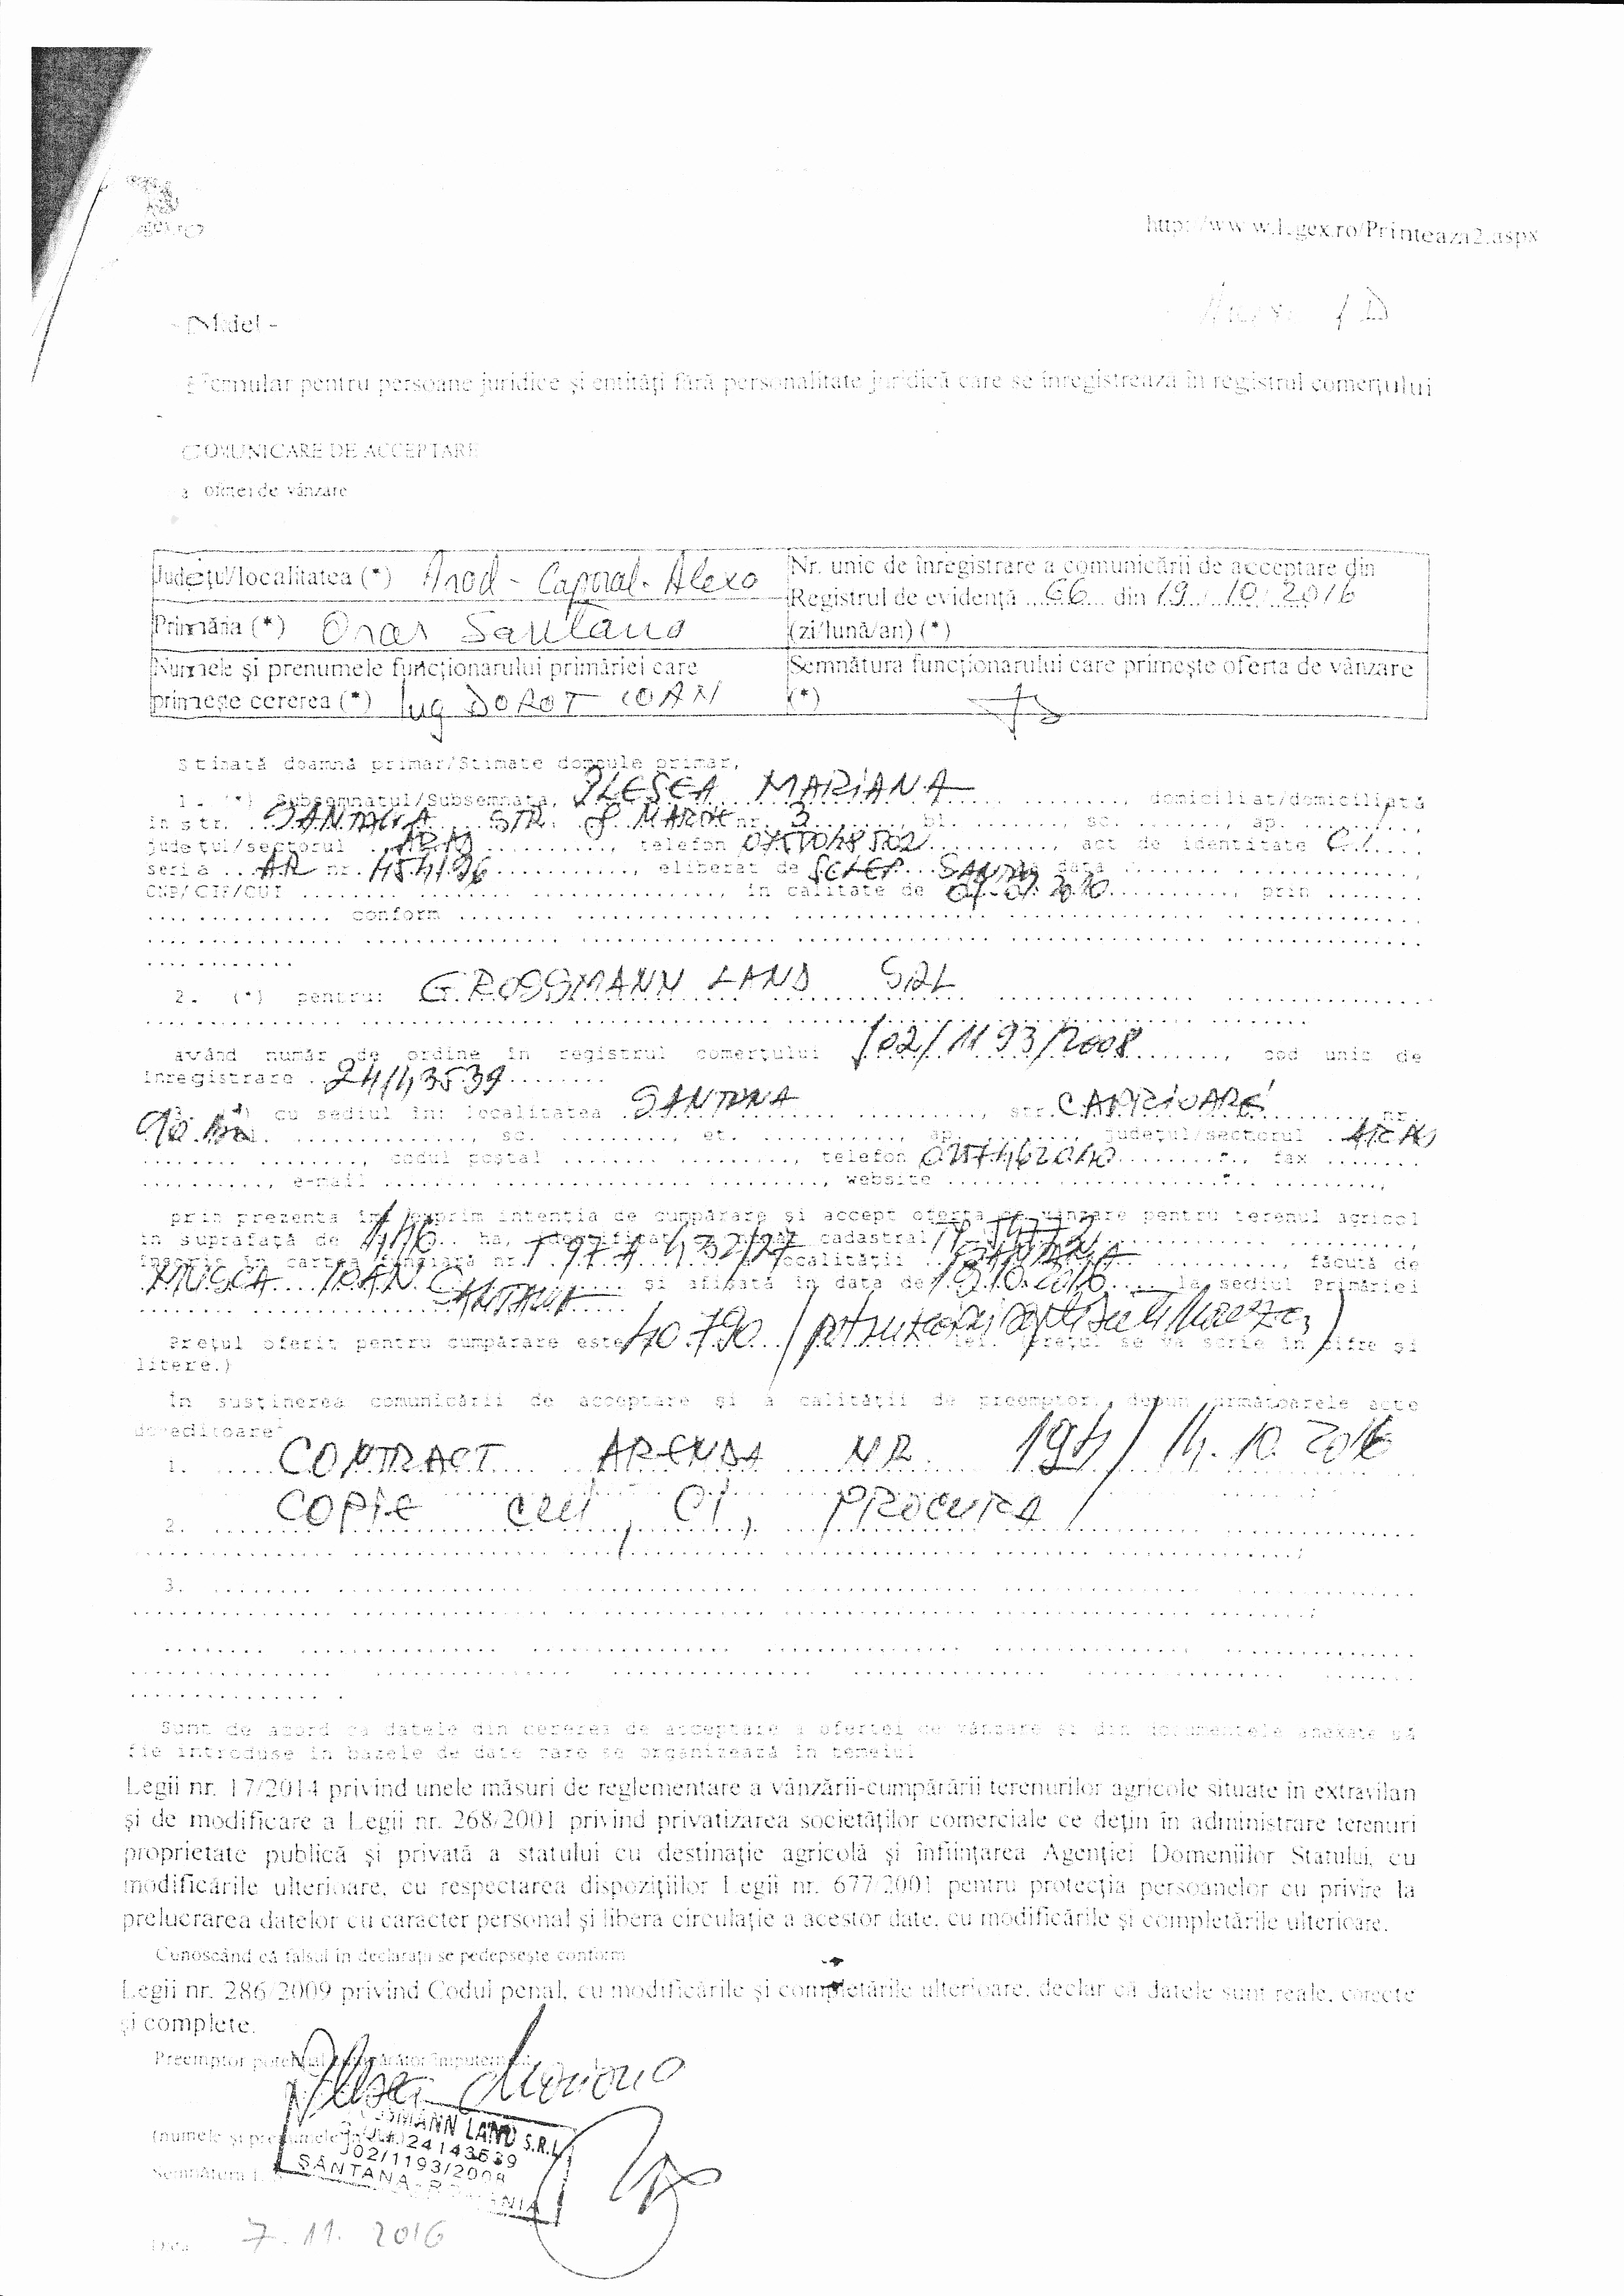 http://www.legex.ro/Printeaza2.aspx
Anexa 1D
- Model -
Formular pentru persoane juridice și entități fără personalitate juridică care se înregistrează în registrul comerțului
-
COMUNICARE DE ACCEPTARE
a ofertei de vânzare
Județul/localitatea (*) Arad - Caporal-Alexa
Nr. unic de înregistrare a comunicării de acceptare din
Registrul de evidență ...66... din 19/10/2016
Primăria (*) Oraș Santana
(zi/lună/an) (*)
Numele și prenumele funcționarului primăriei care
primește cererea (*) Ing DOROT IOAN
Semnătura funcționarului care primește oferta de vânzare
(*)
Stimată doamnă primar/Stimate domnule primar,
1. (*) Subsemnatul/Subsemnata, PLESEA MARIANA ........, domiciliat/domiciliată
în str. SANTANA STR. 8 MARTIE nr. 3 ........, bl. ........, sc. ........, ap. ........,
județul/sectorul ..ARAD............, telefon 0757048502..........., act de identitate C.I.....
seria ...AR nr. 454196............., eliberat de SCLEP SANTANA la data ........ ................,
CNP/CIF/CUI ........ ................ ................, în calitate de ..........., prin ........
................ conform ........ ................ ................ ................ ................
................ ................ ................ ................ ................ ................
............
2. (*) pentru: GROSSMANN LAND SRL ................ ................
................ ................ ................ ................ ................ ........
având număr de ordine în registrul comerțului J02/1193/2008........, cod unic de
înregistrare ..24143539........
3. (*) cu sediul în: localitatea .SANTANA................, str.CAPRIOAREI..........., nr.
................, sc. .........., et. ............, ap. ......., județul/sectorul .ARAD
........ ........, codul poștal ........ ................, telefon 0257462040.........., fax ........
.........., e-mail ........ ................ ........, website ........ ................ ........,
prin prezenta îmi exprim intenția de cumpărare și accept oferta de vânzare pentru terenul agricol
în suprafață de ........ ha, identificat cu număr cadastral ........ ................,
înscris în cartea funciară nr. ........ a localității ..SANTANA............, făcută de
MUSCA IOAN ........ și afișată în data de 19.10.2016.... la sediul Primăriei
........ SANTANA............
Prețul oferit pentru cumpărare este 40.790.. lei. (Prețul se va scrie în cifre și
litere.)
În susținerea comunicării de acceptare și a calității de preemptor, depun următoarele acte
doveditoare:
1. ..... CONTRACT ARENDA NR. 194/14.10.2016
2. ..... COPIE CUI, CI, PROCURA
................ ................ ................ ................ ................;
3. ........ ................ ................ ................ ................ ................
................ ................ ................ ................ ................ ........;
........ ................ ................ ................ ................ ................
................ ................ ................ ................ ................ ........
................ .
Sunt de acord ca datele din cererea de acceptare a ofertei de vânzare și din documentele anexate să
fie introduse în bazele de date care se organizează în temeiul
Legii nr. 17/2014 privind unele măsuri de reglementare a vânzării-cumpărării terenurilor agricole situate în extravilan
și de modificare a Legii nr. 268/2001 privind privatizarea societăților comerciale ce dețin în administrare terenuri
proprietate publică și privată a statului cu destinație agricolă și înființarea Agenției Domeniilor Statului, cu
modificările ulterioare, cu respectarea dispozițiilor Legii nr. 677/2001 pentru protecția persoanelor cu privire la
prelucrarea datelor cu caracter personal și libera circulație a acestor date, cu modificările și completările ulterioare.
Cunoscând că falsul în declarații se pedepsește conform
Legii nr. 286/2009 privind Codul penal, cu modificările și completările ulterioare, declar că datele sunt reale, corecte
și complete.
Preemptor potențial cumpărător/împuternicit,
Plesea Mariana
(numele și prenumele în clar)
GROSSMANN LAND S.R.L.
24143539
J02/1193/2008
SÂNTANA-ROMÂNIA
Semnătura
Data 7.11.2016